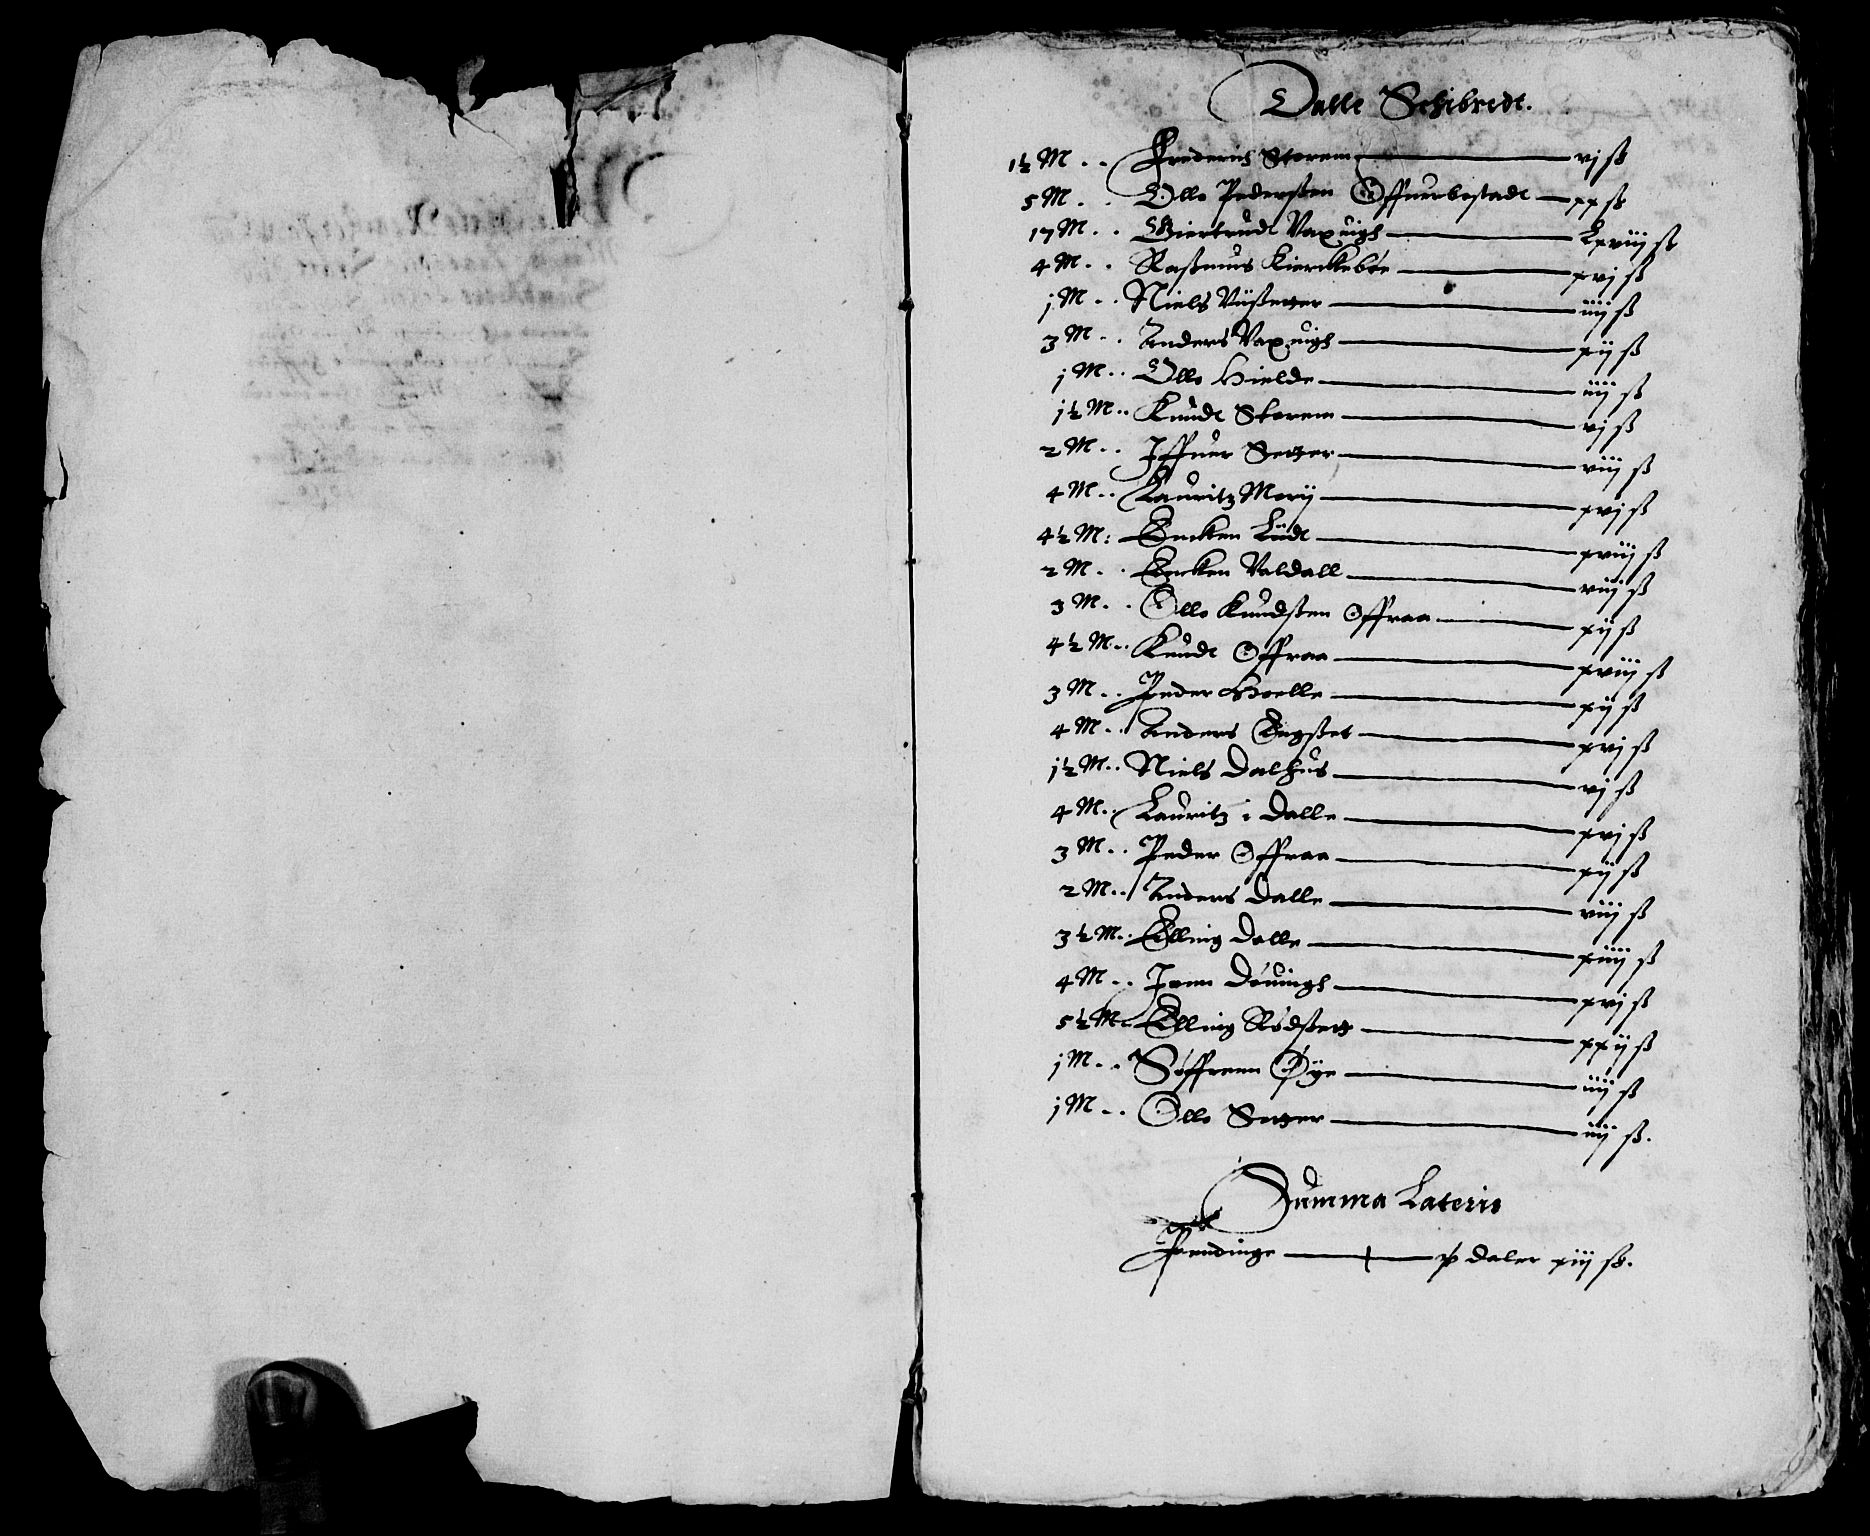 Dalle Schibredt.
1½ M .. Frederich Storem — vj ß
5 M . . Ollo Pederßen Offuerbestadt — xx ß
17 M . . Giertrudt Vaxuigh — Lxviij ß
4 M . . Raßmus Kierckebøe — xvj ß
j M . . Niels Vüßetzer — iiij ß
3 M . . Anders Vaxuigh — xij ß
j M . . Ollo Hielde — iiij ß
j½ M .. Knudt Storem — vj ß
2 M . . Iffuer Setzer — viij ß
4 M . . Lauritz Merij — xvj ß
4½ M : Encken Lüdt — xviij ß
2 M . . Encken Valdall — viij ß
3 M . . Ollo Knudßen Offraa — xij ß
4½ M . . Knudt Offraa — xviij ß
3 M . . Peder Hoelle — xij ß
4 M . . Anders Engßet — xvj ß
j½ M . . Niels Dalhus — vj ß
4 M . . Lauritz i Dalle — xvj ß
3 M . . Peder Offraa — xij ß
2 M . . Anders Dalle — viij ß
3½ M . . Elling Dalle — xiiij ß
4 M . . Jonn Døuingh — xvj ß
5½ M . Elling Rødßetz — xxij ß
j M . . Søffrenn Øye — iiij ß
j M . . Ollo Setzer — iiij ß.
Summa Lateris
Pendinge — daler xiij ß.